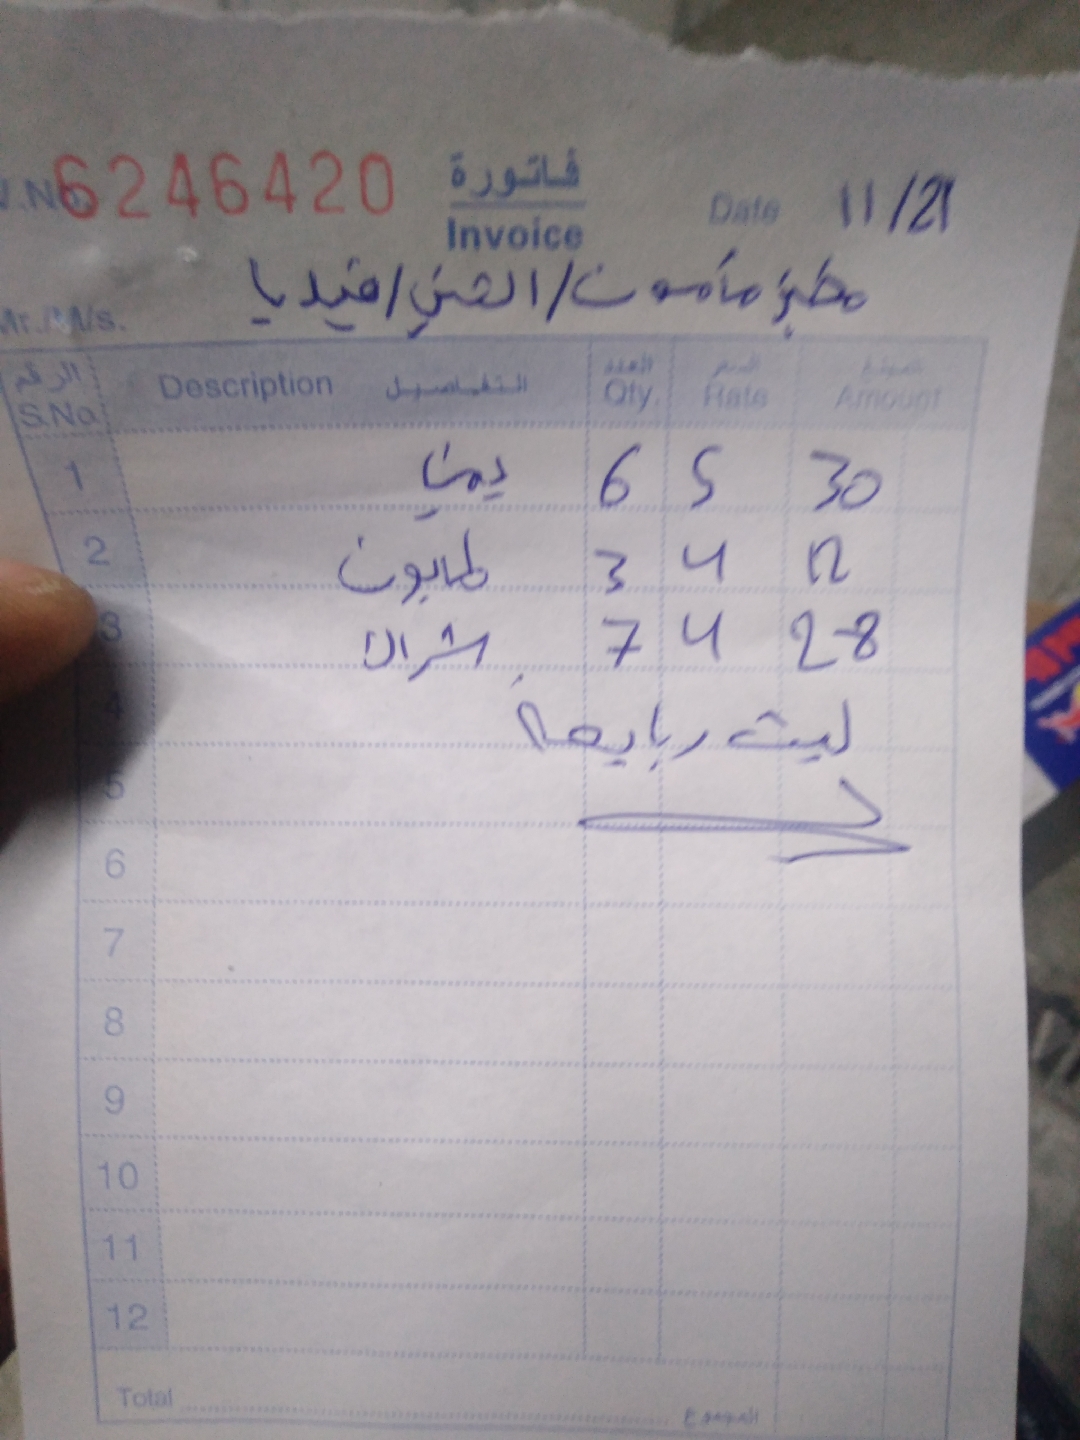 V.No. 6246420 فاتورة Date 11/21
Invoice
مخبز مأمون/الشني/فيديا
Mr./M/s.
الرقم Description التفاصيل العدد السعر مبلغ
S.No. Qty. Rate Amount
1 يمني 6 5 30
2 طابون 3 4 12
3 شراك 7 4 28
4 ليث ربايعة
5
6
7
8
9
10
11
12
Total المجموع